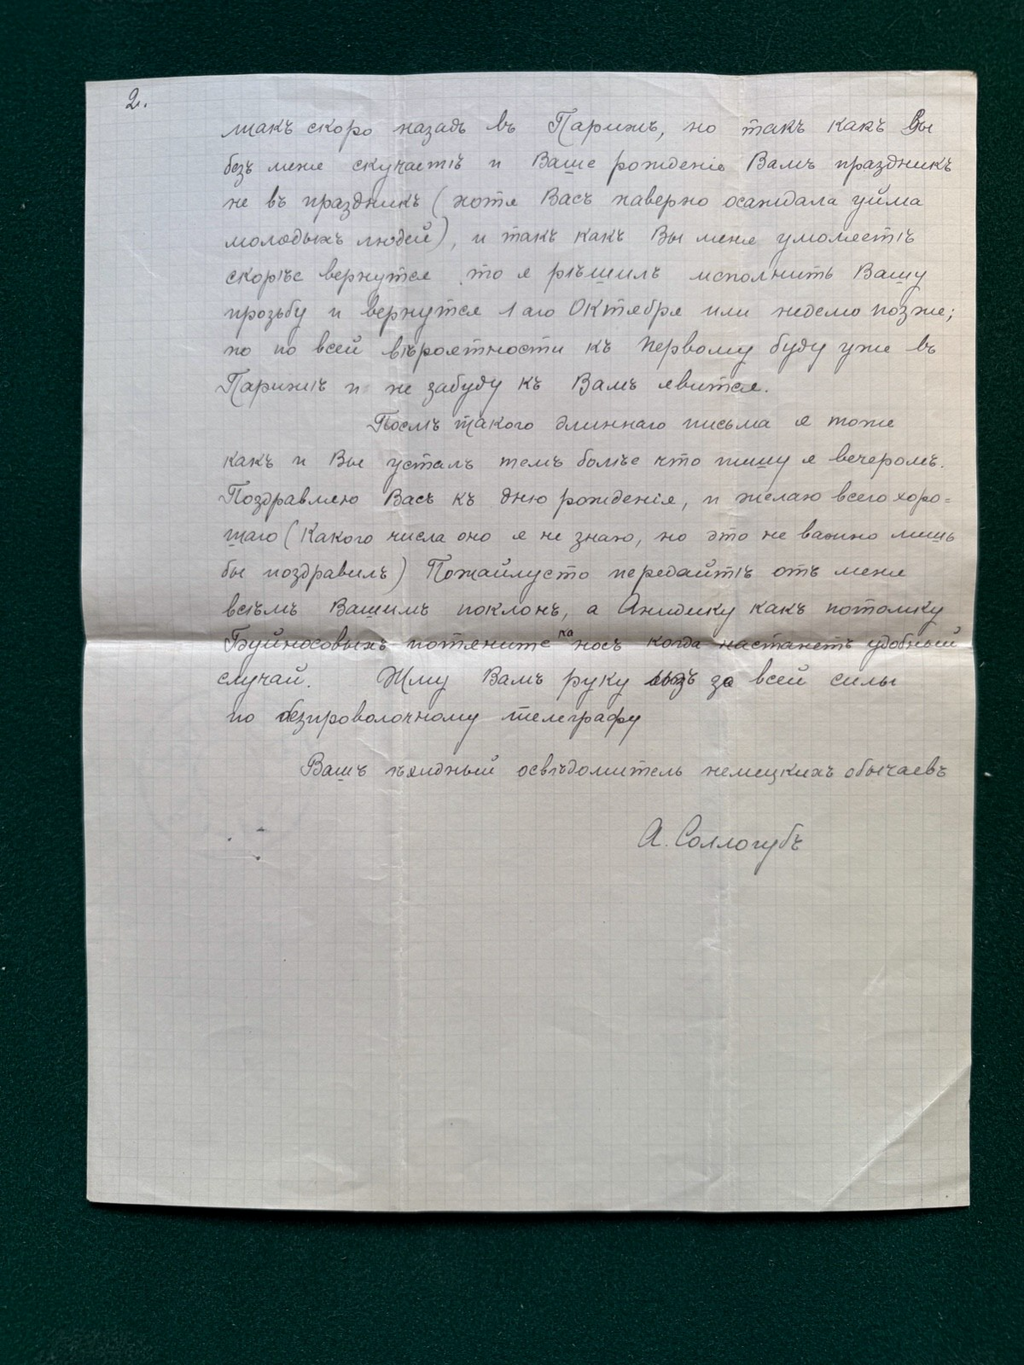 2.
такъ скоро назадъ въ Парижъ, но такъ какъ Вы
безъ меня скучаетѣ и Ваше рожденіе Вамъ праздникъ
не въ праздникъ (хотя Васъ наверно осаждала уйма
молодыхъ людей), и такъ какъ Вы меня умоляетѣ
скорѣе вернутся то я рѣшилъ исполнить Вашу
прозьбу и вернутся 1 аго Октября или неделю позже;
но по всей вѣроятности къ первому буду уже въ
Парижѣ и не забуду къ Вамъ явится.
Послѣ такого длиннаго письма я тоже
какъ и Вы усталъ темъ болѣе что пишу я вечеромъ.
Поздравляю Васъ къ дню рожденія, и желаю всего хоро=
шаго (Какого числа оно я не знаю, но это не важно лишь
бы поздравилъ) Пожайлусто передайтѣ отъ меня
всѣмъ Вашимъ поклонъ, а потомку
Буйносовыхъ потяните за носъ когда настанетъ удобный
случай. Жму Вамъ руку за всей силы
по безпроволочному телеграфу
Вашъ осв­ѣдомитель немецкихъ обычаевъ
А. Соллогубъ